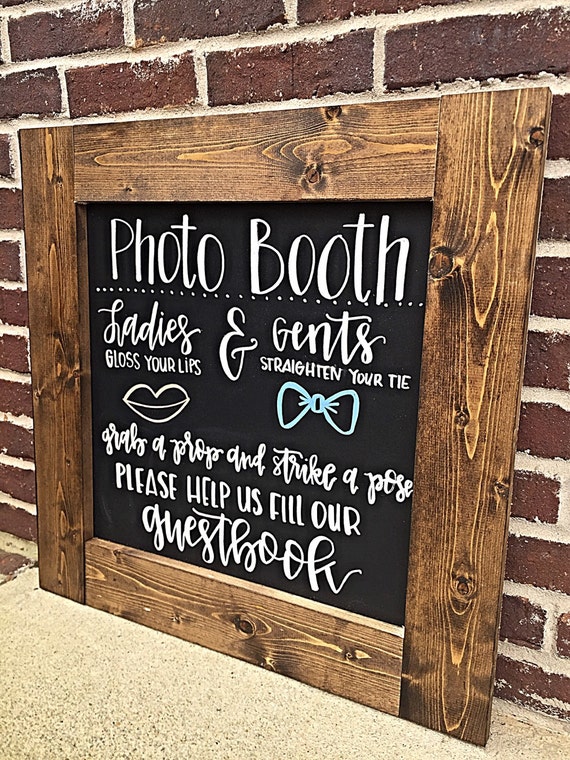 Photo Booth
Ladies & Gents
GLOSS YOUR LIPS STRAIGHTEN YOUR TIE
grab a prop and strike a pose
PLEASE HELP US FILL OUR
guestbook